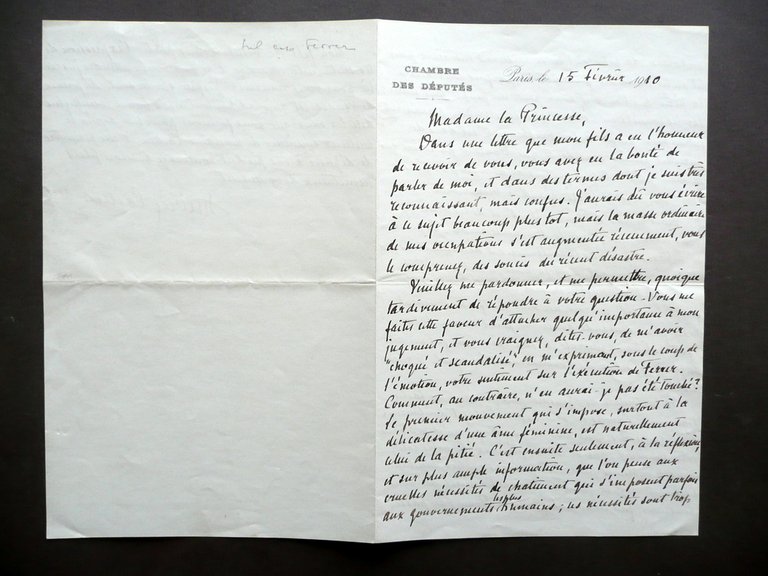 Ferrer
CHAMBRE
DES DÉPUTÉS
Paris, le 15 Février 1910
Madame la Princesse,
Dans une lettre que mon fils a eu l'honneur
de recevoir de vous, vous avez eu la bonté de
parler de moi, et dans des termes dont je suis très
reconnaissant, mais confus. J'aurais dû vous écrire
à ce sujet beaucoup plus tot, mais la masse ordinaire
de mes occupations s'est augmentée récemment, vous
le comprenez, des soucis du récent désastre.
Veuillez me pardonner, et me permettre, quoique
tardivement de répondre à votre question. Vous me
faites cette faveur d'attacher quelqu'importance à mon
jugement, et vous craignez, dites-vous, de m'avoir
"choqué et scandalisé", en m'exprimant, sous le coup de
l'émotion, votre sentiment sur l'exécution de Ferrer.
Comment, au contraire, n'en aurai-je pas été touché?
Le premier mouvement qui s'impose, surtout à la
délicatesse d'une âme féminine, est naturellement
celui de la pitié. C'est ensuite seulement, à la réflexion,
et sur plus ample information, que l'on pense aux
cruelles nécessités de chatiment qui s'imposent parfois
aux gouvernements les plus humains; ces nécessités sont trop